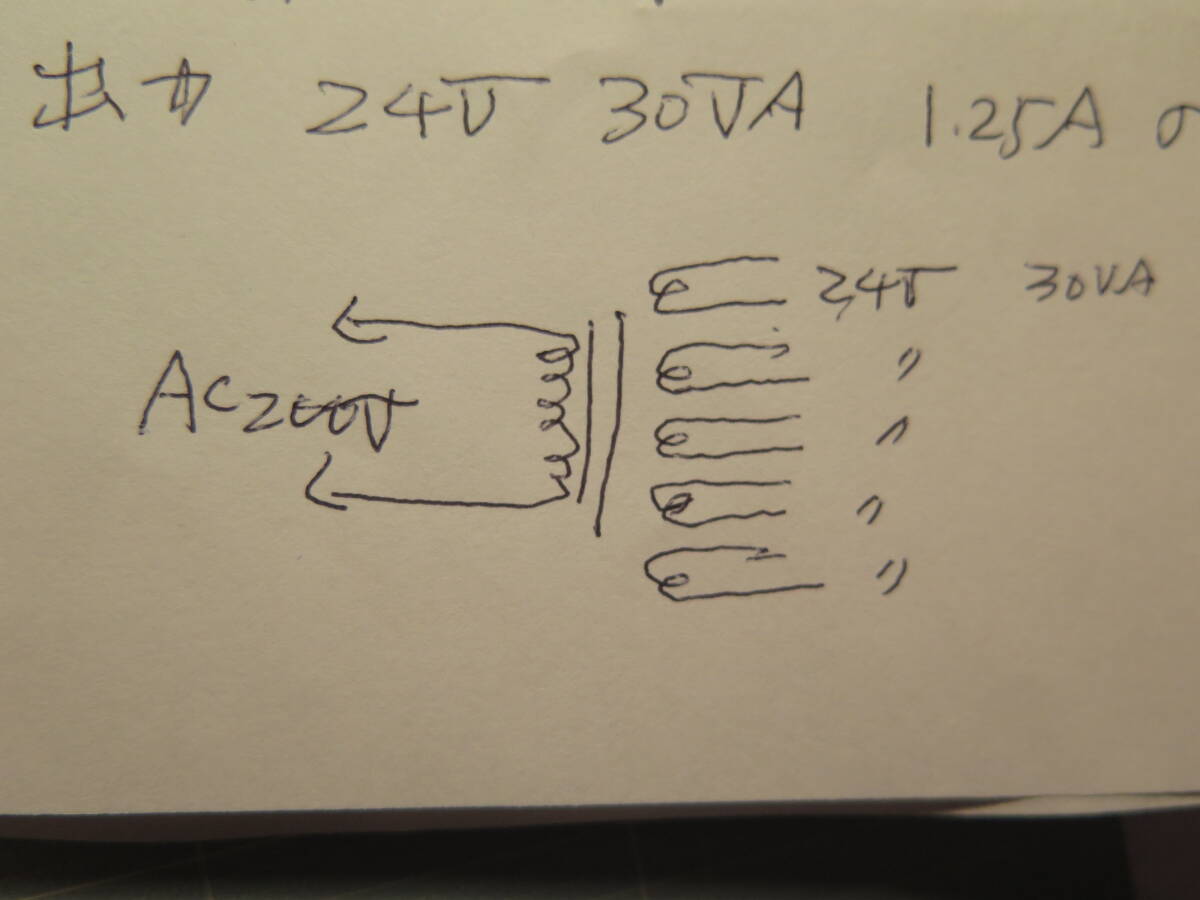 出力 24V 30VA 1.25A の
24V 30VA
〃
AC200V
〃
〃
〃